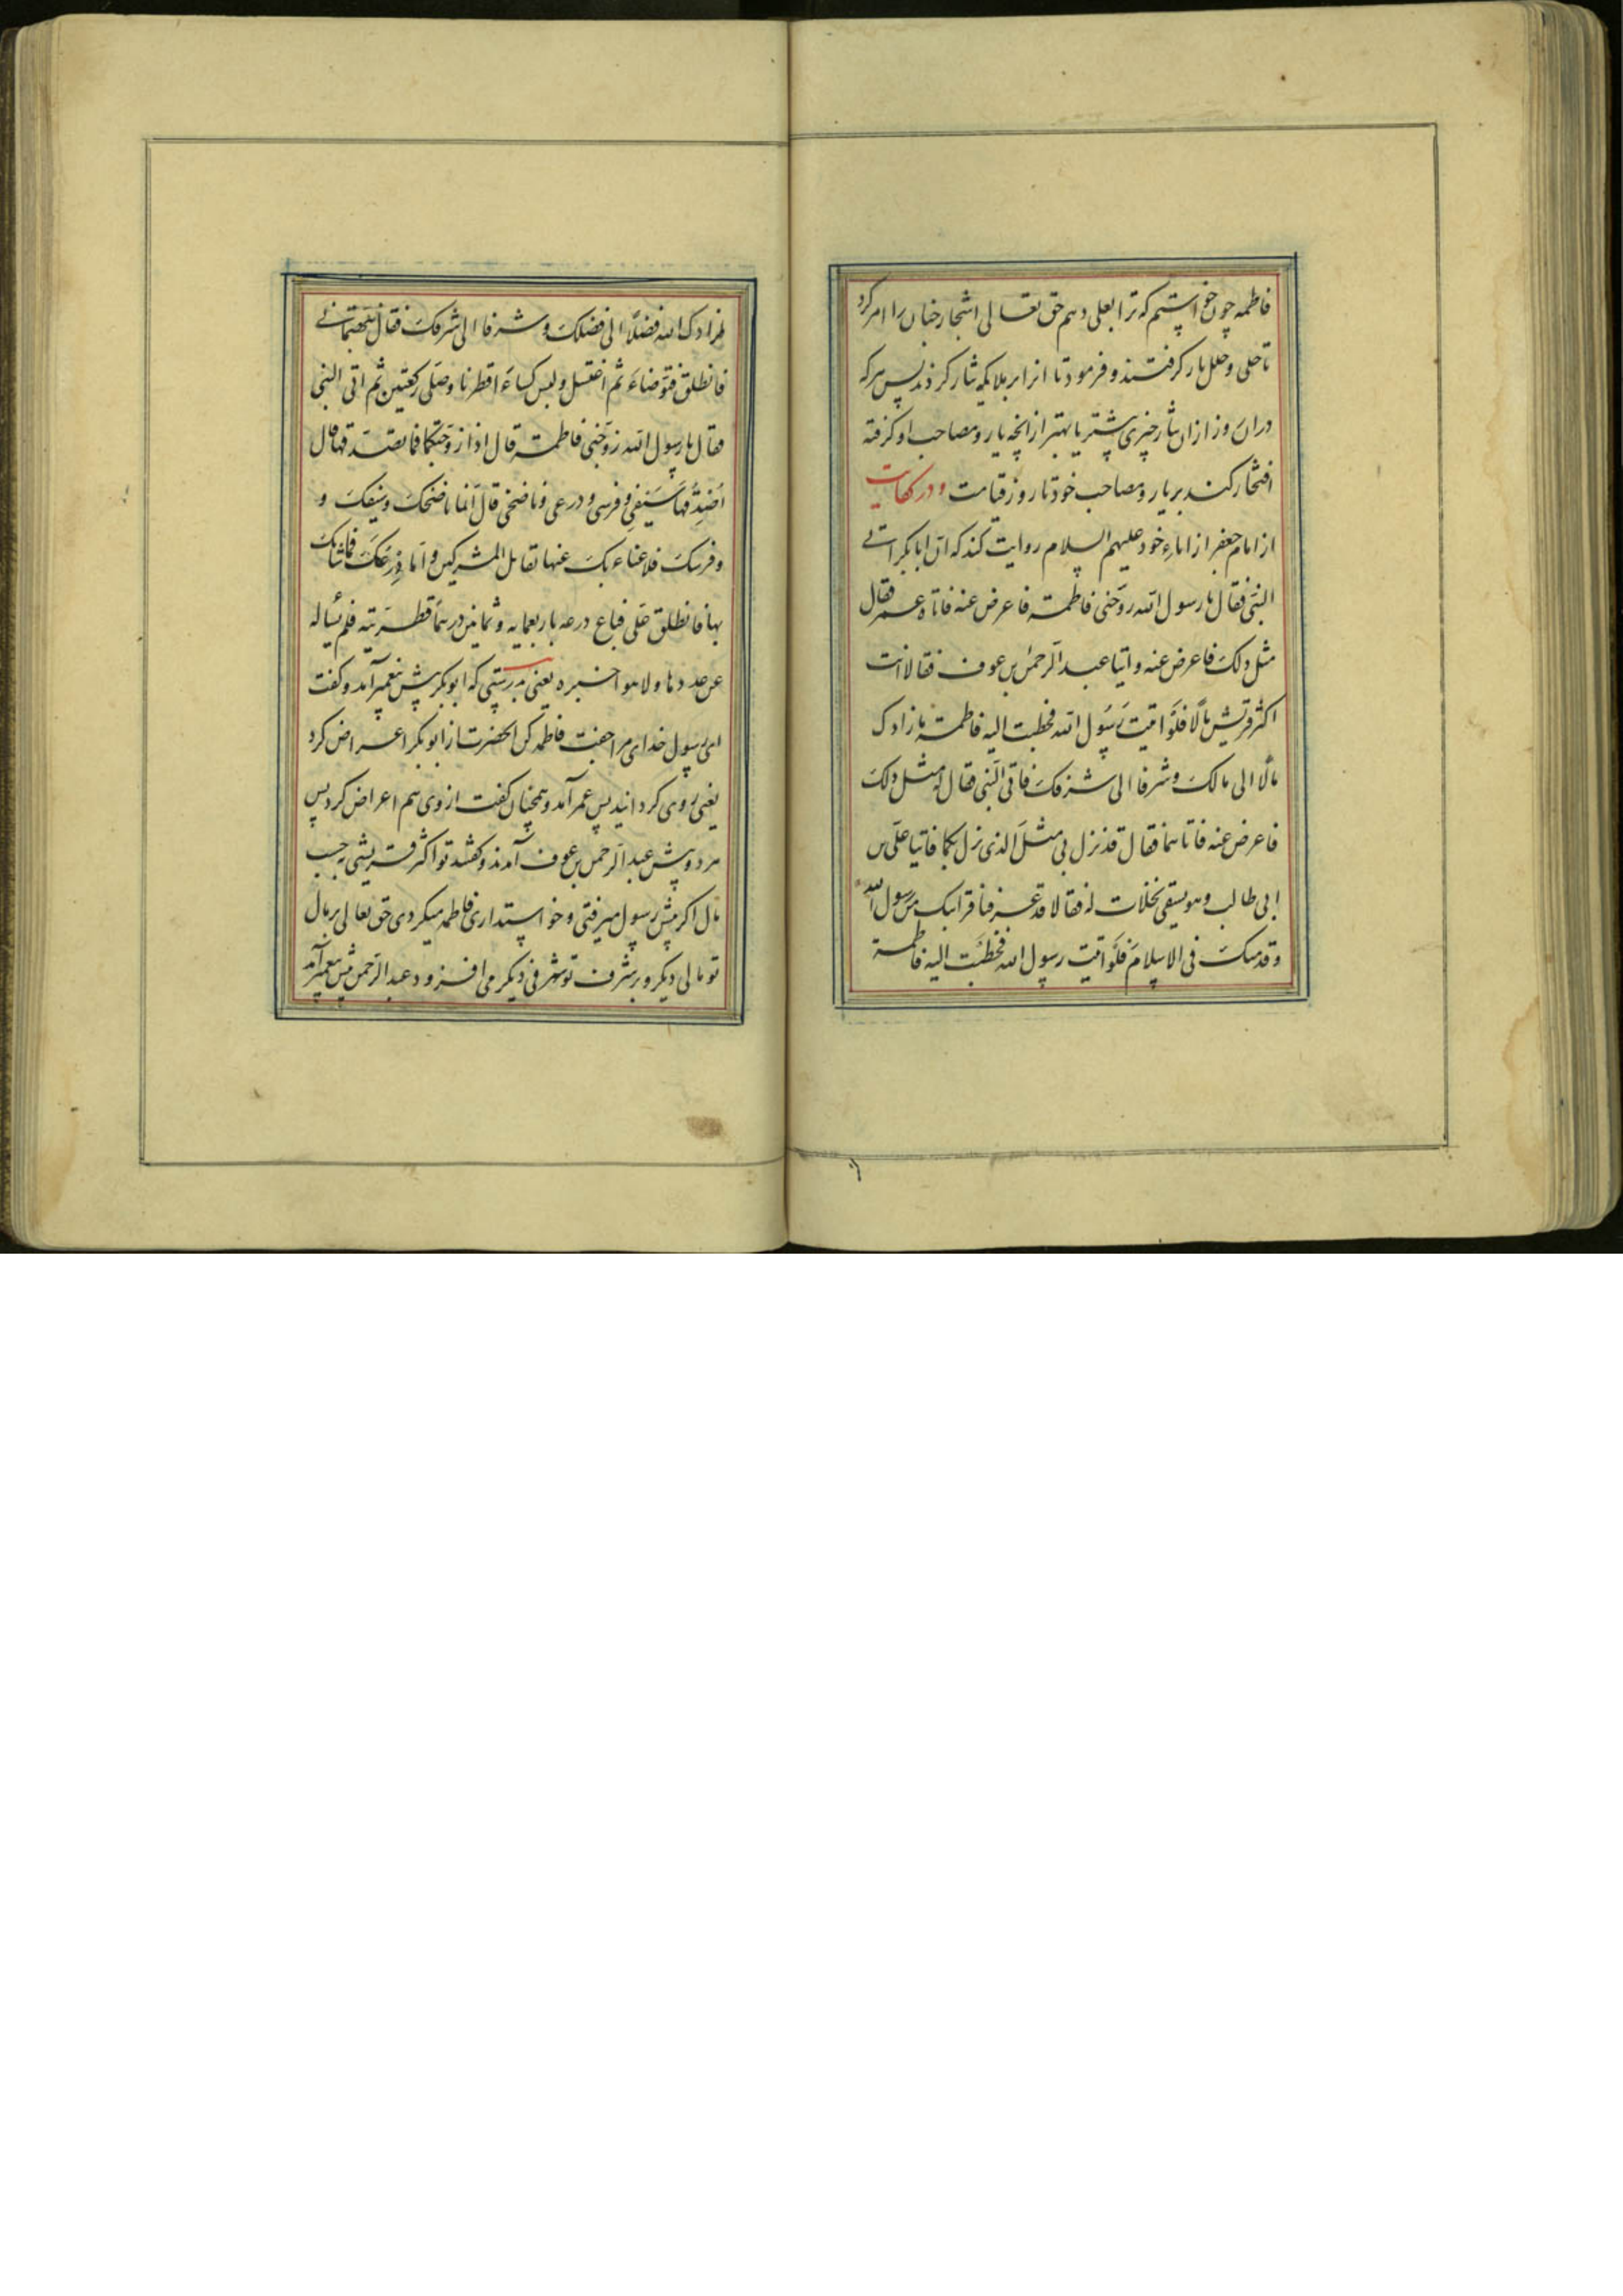 فاطمه چون خواستم که ترا بعلی دهم حق تعالی اشجار جنان را امر کرد
تا حلی و حلل بار گرفتند و فرمود تا انرا بر ملایکه نثار کردند پس هر که
دران روز ازان نثار چیزی پیشتر یا بهتر از آنچه یار و مصاحب او گرفته
افتخار کند بر یار و مصاحب خود تا روز قیامت و در
از امام جعفر از اباء خود علیهم السلام روایت کند که ان ابابکر اتی
النبی فقال یا رسول الله زوجنی فاطمة فاعرض عنه فاتاه عمر فقال
مثل ذلک فاعرض عنه و اتیا عبد الرحمن بن عوف فقالا انت
اکثر قریش مالا فلو اتیت رسول الله فخطبت الیه فاطمة زادک
مالا الی مالک و شرفا الی شرفک فاتی النبی فقال له مثل ذلک
فاعرض عنه فاتاهما فقال قد نزل بی مثل الذی نزل بکما فاتیا علی بن
ابی طالب و هو یسقی نخلات له فقالا قد عرفنا قرابتک من رسول الله
و قدمتک فی الاسلام فلو اتیت رسول الله فخطبت الیه فاطمة
لزادک الله فضلا الی فضلک و شرفا الی شرفک فقال
فانطلق فتوضاء ثم اغتسل و لبس کساء قطریا و صلی رکعتین ثم اتی النبی
فقال یا رسول الله زوجنی فاطمة قال اذا زوجتکها فما تصدقها قال
اصدقها سیفی و فرسی و درعی و ناضحی قال اما ناضحک و سیفک و
و فرسک فلا غناء بک عنها تقاتل المشرکین و اما درعک فشانک
بها فانطلق علی فباع درعه باربعمایه و ثمانین درهما قطریة فلم یساله
عن عددها و لا هو اخبره یعنی بدرستی که ابوبکر پیش پیغمبر آمد و گفت
ای رسول خدای مرا جفت فاطمه کن انحضرت از ابوبکر اعراض کرد
یعنی روی گردانید پس عمر آمد و همچنان گفت از وی هم اعراض کرد پس
هر دو پیش عبد الرحمن بن عوف آمدند و گفتند تو اکثر قریشی بحسب
مال اکر پیش رسول میرفتی و خواستداری فاطمه میکردی حق تعالی بر مال
تو مالی دیکر و بر شرف تو شرفی دیکر می افزود عبد الرحمن پیش پیغمبر آمد